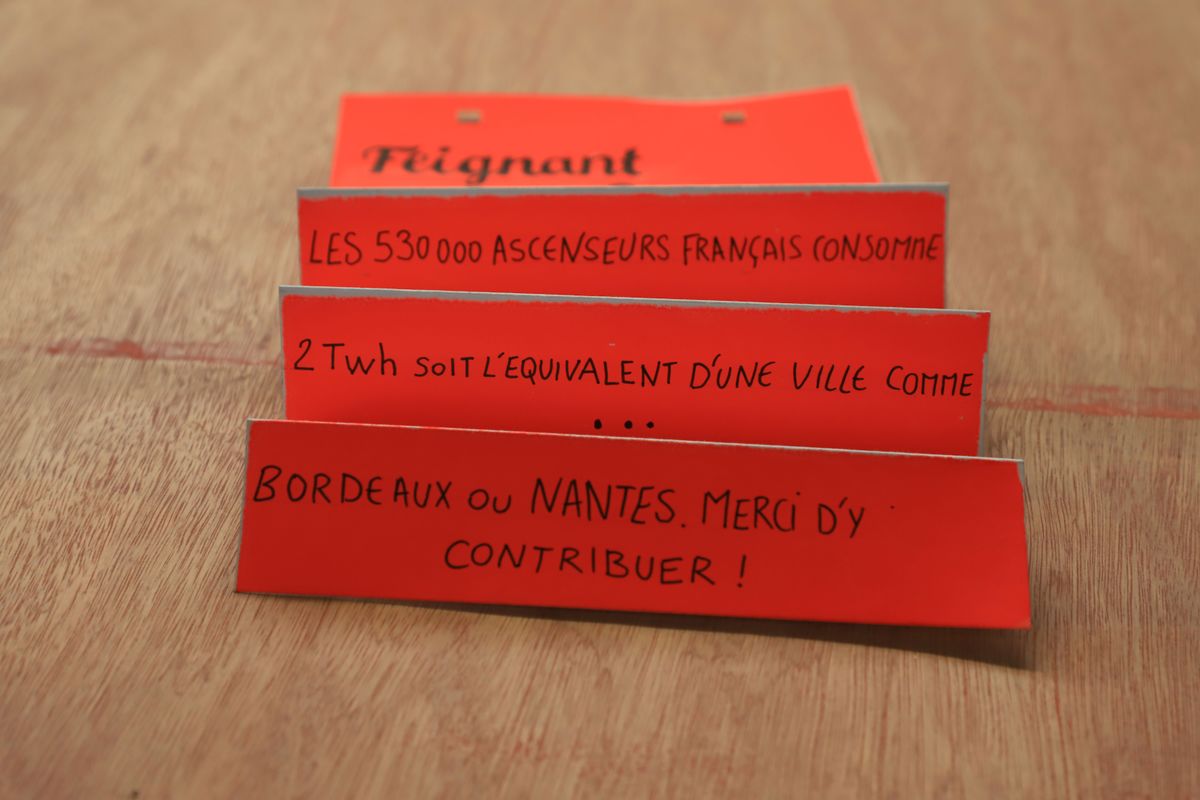 Feignant
LES 530 000 ASCENSEURS FRANÇAIS CONSOMME
2 Twh SOIT L'EQUIVALENT D'UNE VILLE COMME
...
BORDEAUX OU NANTES. MERCI D'Y
CONTRIBUER !